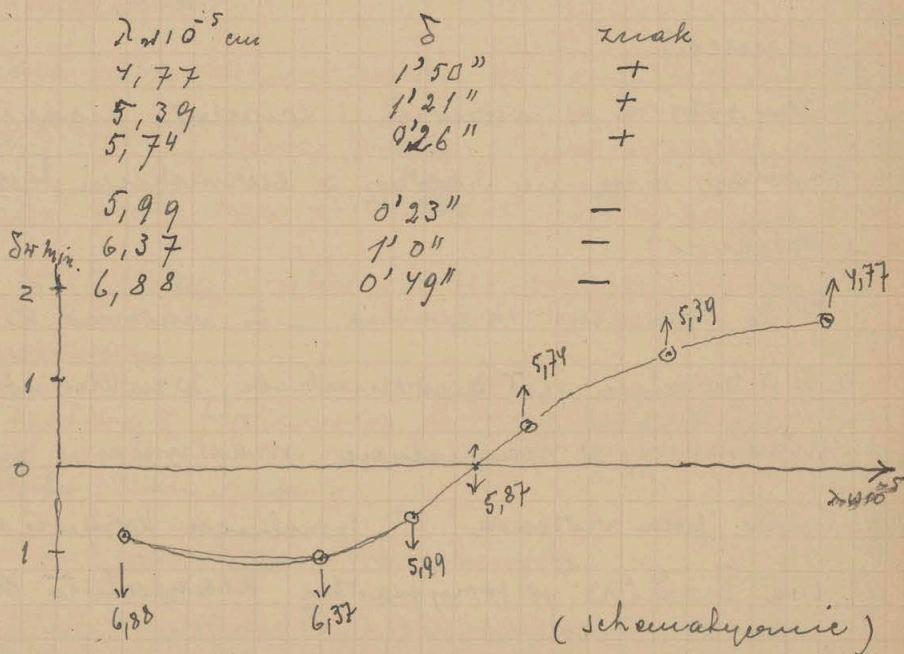 λ w 10⁻⁵ cm δ znak
4,77 1'50" +
5,39 1'21" +
5,74 0'26" +
5,99 0'23" —
6,37 1'0" —
6,88 0'49" —
δ w min.
2
1
0
1
6,88
6,37
5,99
5,87
5,74
5,39
4,77
λ w 10⁻⁵
(schematycznie)